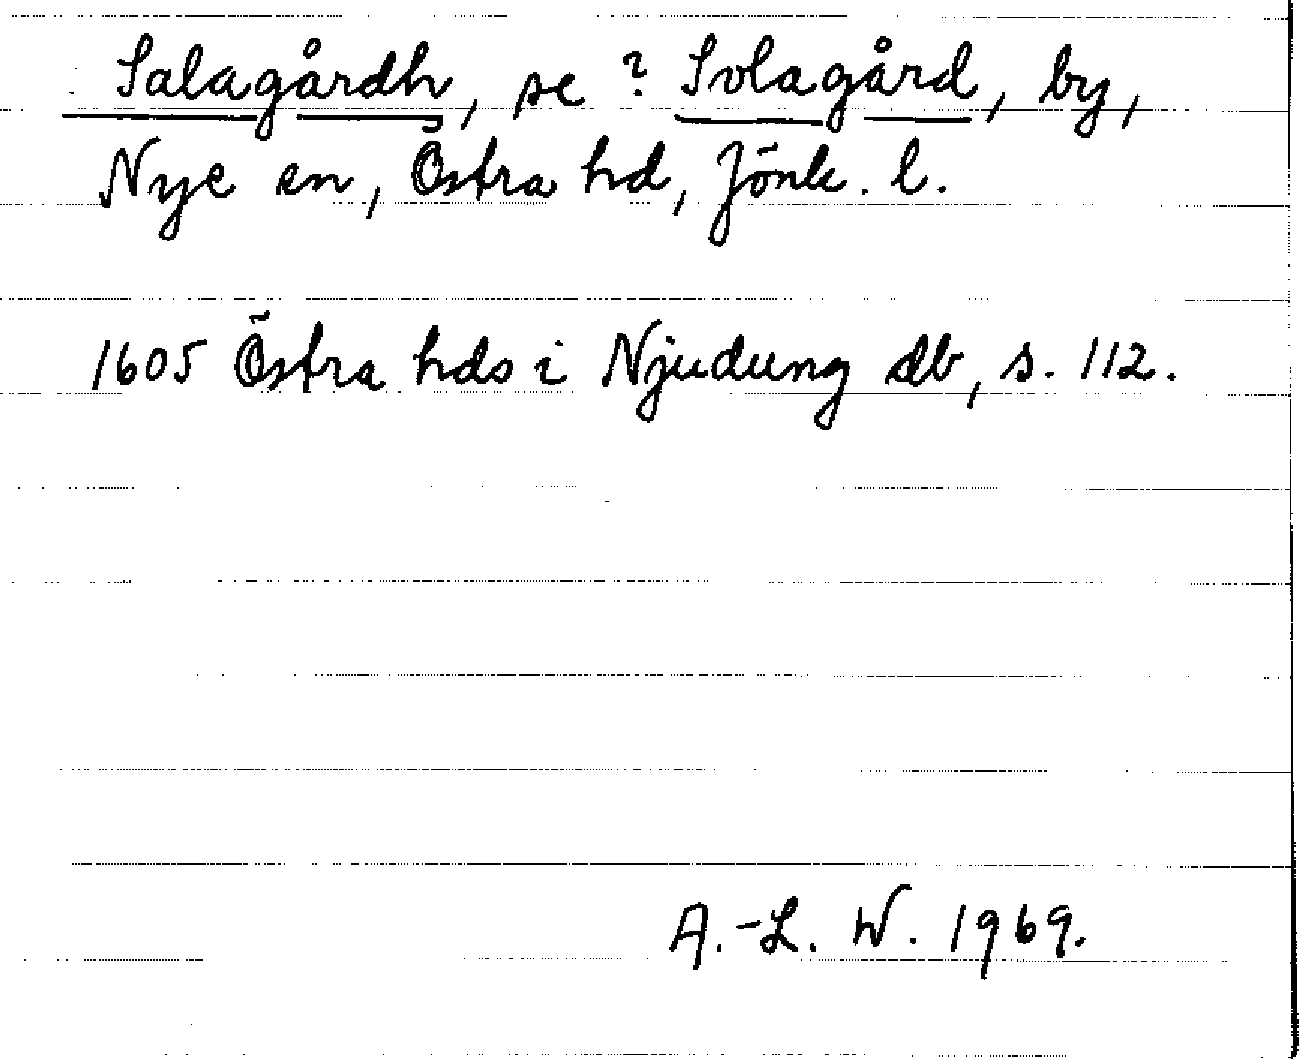 Salagårdh, se ? Solagård, by,
Nye sn, Östra hd, Jönk. l.
1605 Östra hds i Njudung db, s. 112.
A.-L. W. 1969.